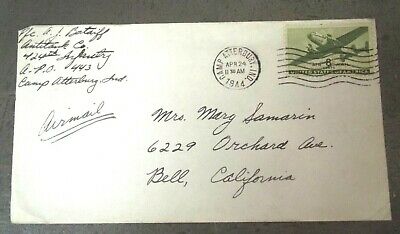 Pfc. A. J. Bataiff
Antitank Co.
424th Infantry
A.P.O. 443
Camp Atterbury Ind.
CAMP ATTERBURY, IND.
APR 24
11 30 AM
1944
8
UNITED STATES OF AMERICA
Airmail
Mrs. Mary Samarin
6229 Orchard Ave.
Bell, California